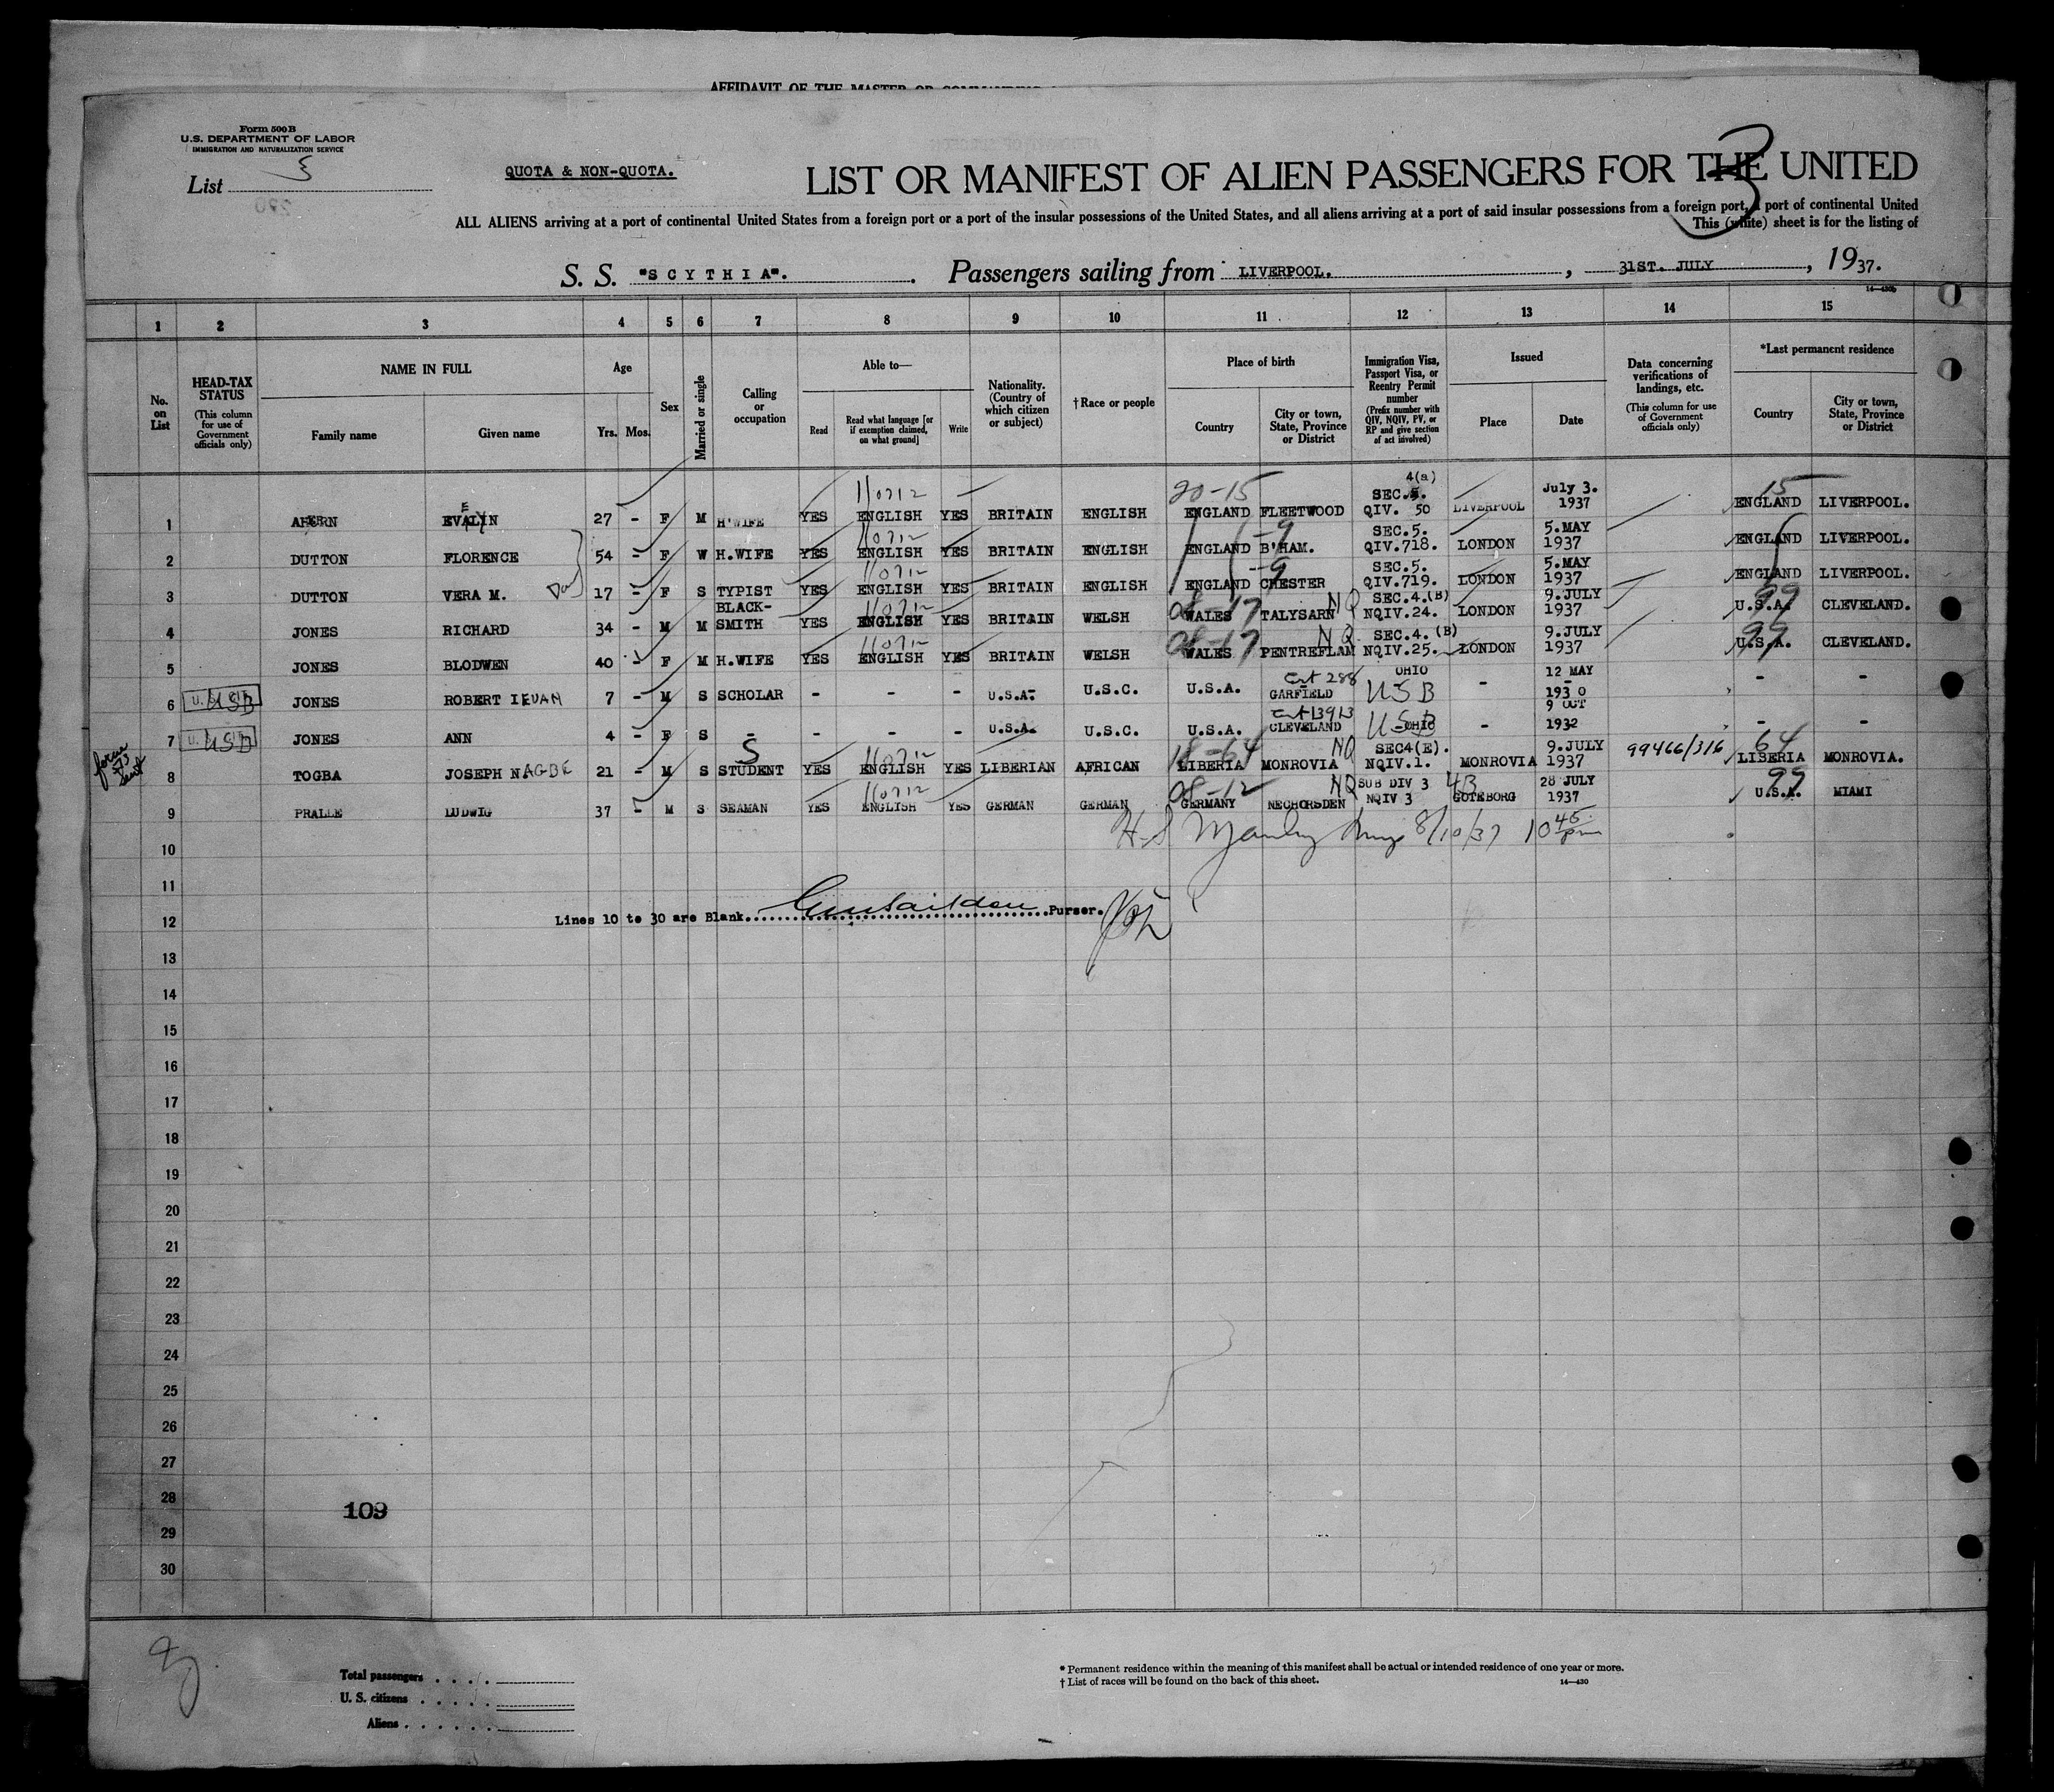 AFFIDAVIT OF THE MASTER OR COMMANDING
Form 500 B
U.S. DEPARTMENT OF LABOR
IMMIGRATION AND NATURALIZATION SERVICE
List 3
QUOTA & NON-QUOTA.
LIST OR MANIFEST OF ALIEN PASSENGERS FOR THE UNITED
3
ALL ALIENS arriving at a port of continental United States from a foreign port or a port of the insular possessions of the United States, and all aliens arriving at a port of said insular possessions from a foreign port, a port of continental United
This (white) sheet is for the listing of
S. S. "SCYTHIA". Passengers sailing from LIVERPOOL. , 31ST. JULY , 1937.
14-430b
1 2 3 4 5 6 7 8 9 10 11 12 13 14 15
No. on List
HEAD-TAX STATUS
(This column for use of Government officials only)
NAME IN FULL
Family name
Given name
Age
Yrs. Mos.
Sex
Married or single
Calling or occupation
Able to—
Read
Read what language [or if exemption claimed, on what ground]
Write
Nationality. (Country of which citizen or subject)
†Race or people
Place of birth
Country
City or town, State, Province or District
Immigration Visa, Passport Visa, or Reentry Permit number
(Prefix number with QIV, NQIV, PV, or RP and give section of act involved)
Issued
Place
Date
Data concerning verifications of landings, etc.
(This column for use of Government officials only)
*Last permanent residence
Country
City or town, State, Province or District
110712 20-15 4(a) SEC. July 3. 15
1 27 - F M H'WIFE YES ENGLISH YES BRITAIN ENGLISH ENGLAND FLEETWOOD QIV. 50 LIVERPOOL 1937 ENGLAND LIVERPOOL.
110712 -9 SEC.5. 5.MAY
2 DUTTON FLORENCE 54 - F W H.WIFE YES ENGLISH YES BRITAIN ENGLISH ENGLAND B'HAM. QIV.718. LONDON 1937 ENGLAND LIVERPOOL.
110712 -9 SEC.5. 5.MAY
3 DUTTON VERA M. 17 - F S TYPIST YES ENGLISH YES BRITAIN ENGLISH ENGLAND CHESTER QIV.719. LONDON 1937 ENGLAND LIVERPOOL.
BLACK- 110712 08-17 NQ SEC.4.(B) 9.JULY 99
4 JONES RICHARD 34 - M M SMITH YES ENGLISH YES BRITAIN WELSH WALES TALYSARN NQIV.24. LONDON 1937 U.S.A. CLEVELAND.
110712 08-17 NQ SEC.4. (B) 9.JULY 99
5 JONES BLODWEN 40 - F M H.WIFE YES ENGLISH YES BRITAIN WELSH WALES PENTREFLAM NQIV.25. LONDON 1937 U.S.A. CLEVELAND.
Crt 288 OHIO 12 MAY
6 USB JONES ROBERT IEUAN 7 - M S SCHOLAR - - - U.S.A. U.S.C. U.S.A. GARFIELD USB - 1930 - -
Crt 13913 9 OCT
7 USB JONES ANN 4 - F S - - - - U.S.A. U.S.C. U.S.A. CLEVELAND USB OHIO - 1932 - -
S 110712 18-64 NQ SEC4(E). 9.JULY 99466/316 64
8 TOGBA JOSEPH NAGBE 21 - M S STUDENT YES ENGLISH YES LIBERIAN AFRICAN LIBERIA MONROVIA NQIV.1. MONROVIA 1937 LIBERIA MONROVIA.
110712 08-12 NQ SUB DIV 3 4B 28 JULY 99
9 PRALLE LUDWIG 37 - M S SEAMAN YES ENGLISH YES GERMAN GERMAN GERMANY NECHORSDEN NQIV 3 GOTEBORG 1937 U.S.A. MIAMI
8/10/37 10 45 pm
10
11
12 Lines 10 to 30 are Blank. Purser.
13
14
15
16
17
18
19
20
21
22
23
24
25
26
27
28
109
29
30
Total passengers
U. S. citizens
Aliens
* Permanent residence within the meaning of this manifest shall be actual or intended residence of one year or more.
† List of races will be found on the back of this sheet.
14-430